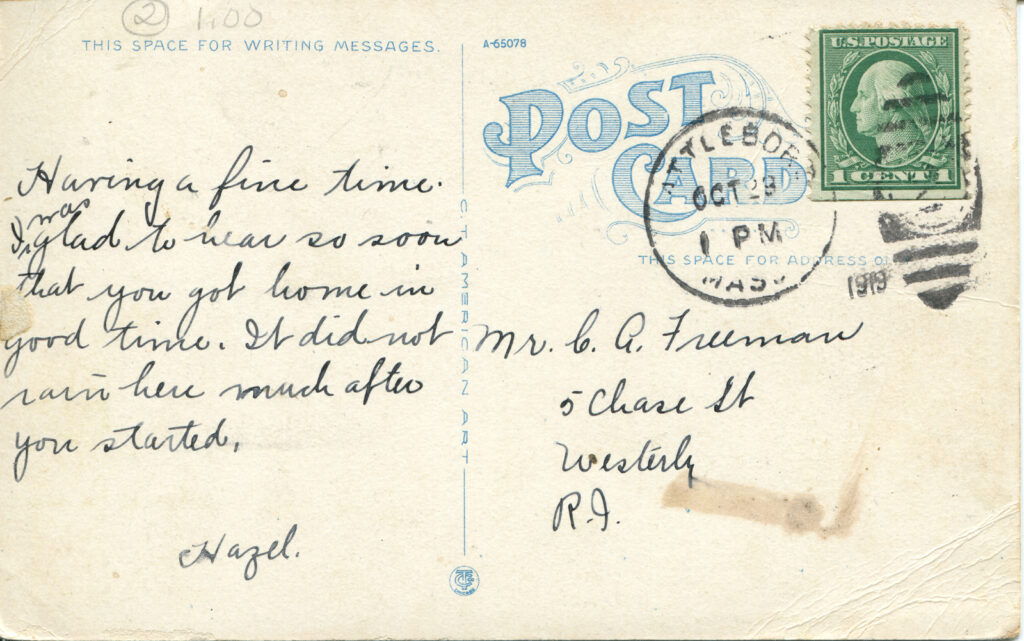 2 1.00
THIS SPACE FOR WRITING MESSAGES.
Having a fine time.
I was glad to hear so soon
that you got home in
good time. It did not
rain here much after
you started.
Hazel.
C. T. AMERICAN ART
A-65078
POST
CARD
U.S. POSTAGE
1 CENT 1
ATTLEBORO
OCT 23
1 PM
MASS
1919
THIS SPACE FOR ADDRESS ON
Mr. C. A. Freeman
5 Chase St
Westerly
R.I.